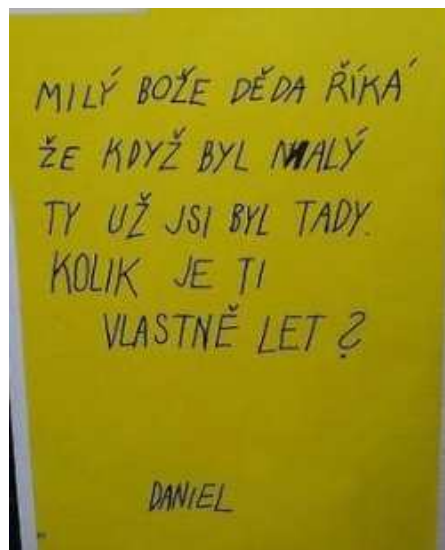 MILÝ BOŽE DĚDA ŘÍKÁ
ŽE KDYŽ BYL MALÝ
TY UŽ JSI BYL TADY.
KOLIK JE TI
VLASTNĚ LET?
DANIEL